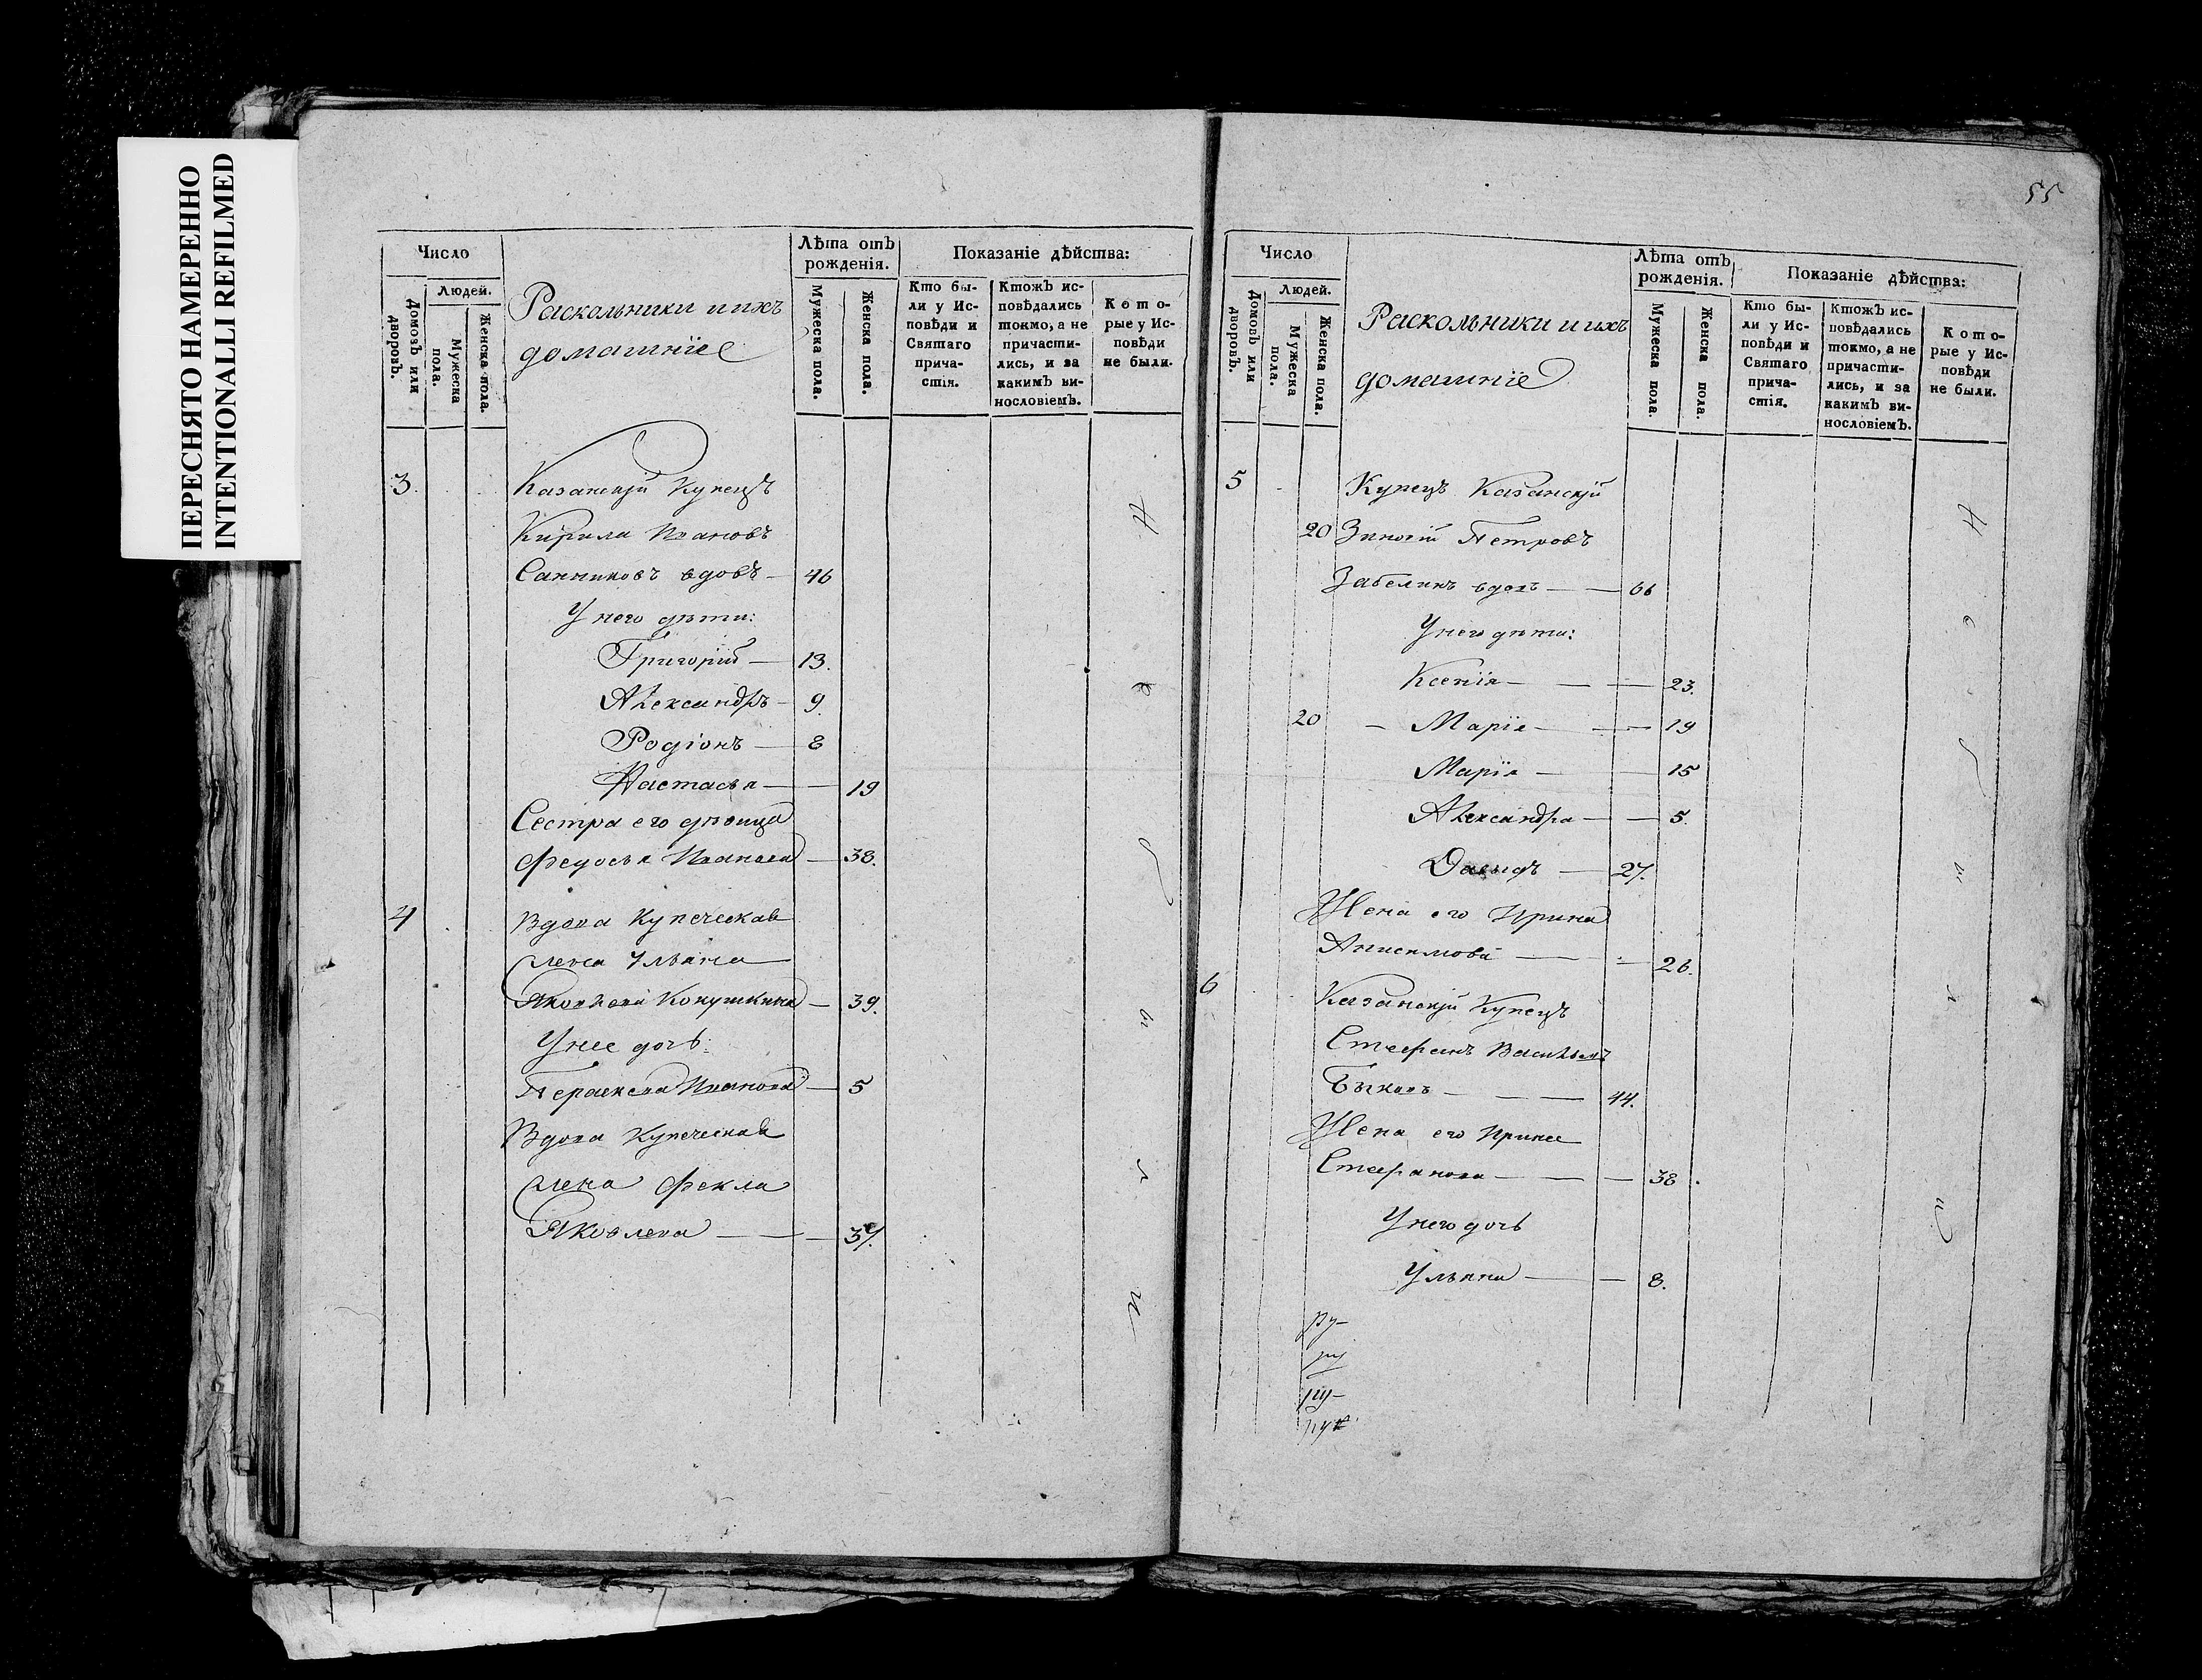 ПЕРЕСНЯТО НАМЕРЕННО
INTENTIONALLI REFILMED
Число
Людей.
Домовъ или дворовъ.
Мужеска пола.
Женска пола.
Раскольники и ихъ
домашнїе
Лѣта отъ
рожденія.
Мужеска пола.
Женска пола.
Показаніе дѣйства:
Кто бы-
ли у Ис-
повѣди и
Святаго
прича-
стія.
Ктожъ ис-
повѣдались
токмо, а не
причасти-
лись, и за
какимъ ви-
нословіемъ.
Кото-
рые у Ис-
повѣди
не были.
3. Казанскїй Купецъ
Кирила Ивановъ
Санниковъ вдовъ — 46
У него дѣти:
Григорій — 13.
Александръ — 9.
Родіонъ — 8
Настасья — — 19
Сестра его дѣвица
Федосья Иванова — 38.
4 Вдова Купеческая
жена Ульяна
Яковлева Кокушкина — 39.
У нее дочь:
Парасковья Иванова — 5
Вдова Купеческая
жена Фекла
Яковлева — — — 37.
Н
е
б
ы
л
и
55
Число
Людей.
Домовъ или дворовъ.
Мужеска пола.
Женска пола.
Раскольники и ихъ
домашнїе
Лѣта отъ
рожденія.
Мужеска пола.
Женска пола.
Показаніе дѣйства:
Кто бы-
ли у Ис-
повѣди и
Святаго
прича-
стія.
Ктожъ ис-
повѣдались
токмо, а не
причасти-
лись, и за
какимъ ви-
нословіемъ.
Кото-
рые у Ис-
повѣди
не были.
5 Купецъ Казанскїй
20 Зиновій Петровъ
Забелинъ вдовъ — — 66
У него дѣти:
Ксенїя — — — 23.
20 — Марїя — — — 19
Марїя — — 15
Александра — — 5.
Давыдъ — 27.
Жена его Ирина
Анисимова — — 26.
6 Казанскїй Купецъ
Стефанъ Васильевъ
Быковъ — — — 44.
Жена его Ирина
Стефанова — — — 38.
У него дочь
Ульяна — — 8.
ру-
ру
ру-
рук
Н
е
б
ы
л
и